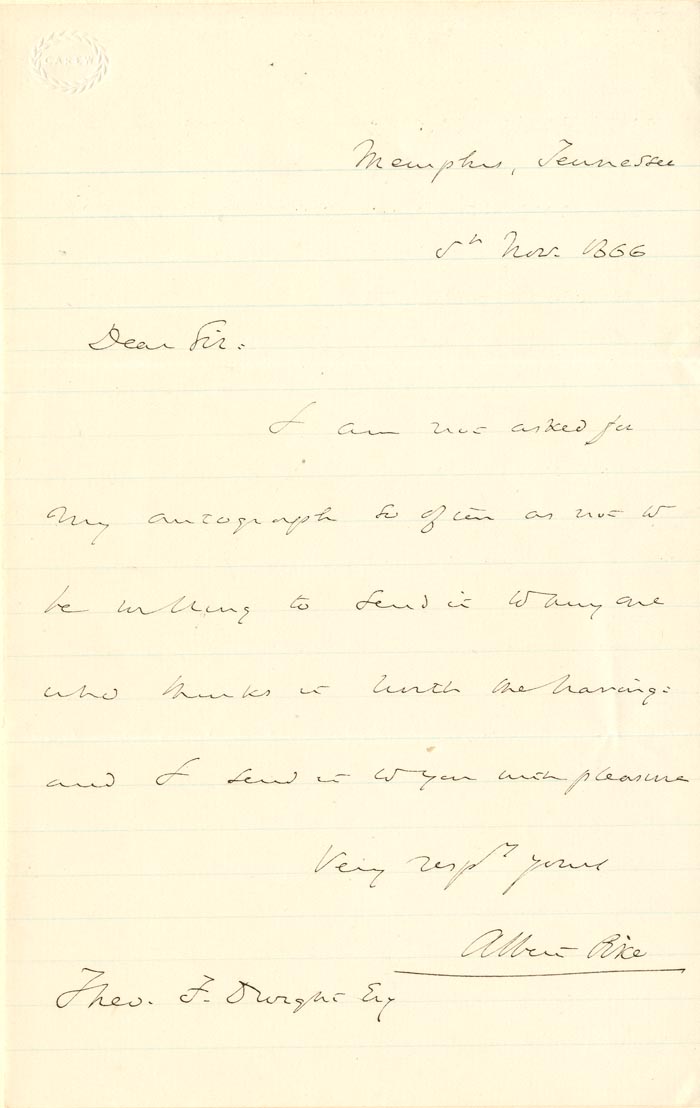 CAREW
Memphis, Tennessee
5th Nov. 1866
Dear Sir:
I am not asked for
my autograph so often as not to
be willing to send it to any one
who thinks it worth the having:
and I send it to you with pleasure
Very respy yours
Albert Pike
Theo. F. Dwight Esq